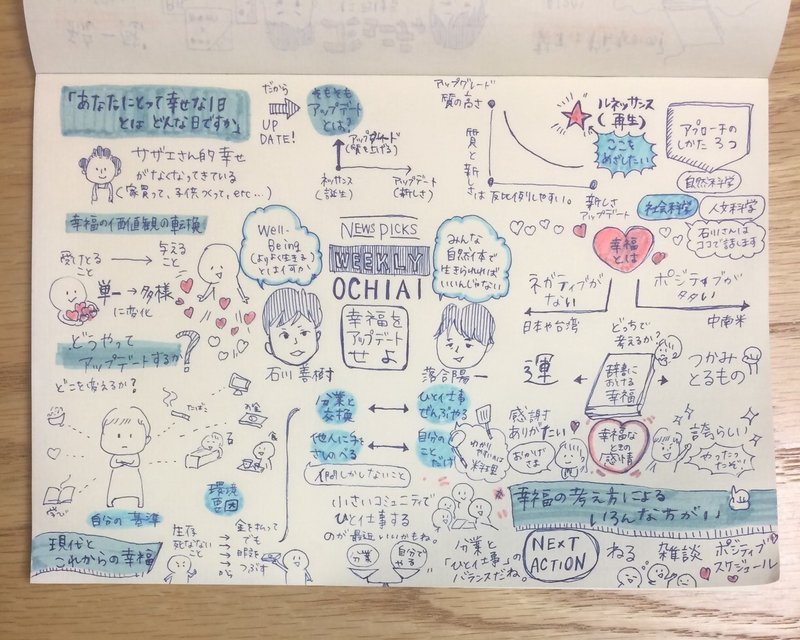 「あなたにとって幸せな1日
とは どんな日ですか」
だから
UP
DATE!
そもそも
アップデート
とは?
アップグレード
(質を上げる)
ネッサンス
(誕生)
アップデート
(新しさ)
アップグレード
質の高さ
ルネッサンス
(再生)
ここを
めざしたい
質と新しさ
は反比例しやすい。
新しさ
アップデート
アプローチの
しかた 3つ
自然科学
社会科学
人文科学
石川さんは
ココで話します
サザエさん的幸せ
がなくなってきている
(家買って、子供つくって、etc...)
幸福の価値観の転換
受けとる
こと
与える
こと
単一→多様
に変化
Well-
Being
(よりよく生きる)
とは何か
NEWS PICKS
WEEKLY
OCHIAI
幸福を
アップデート
せよ
みんな
自然体で
生きられれば
いいんじゃない
石川善樹
落合陽一
幸福
とは
ネガティブが
ない
日本や台湾
ポジティブが
多い
中南米
どっちで
考えるか?
運
辞書に
おける
幸福
つかみ
とるもの
どうやって
アップデートするか?
どこを変えるか?
たばこ
お金
学び
自分の基準
環境
要因
分業と
交換
ひと仕事
ぜんぶやる
他人に手を
さしのべる
自分の
こと
だけ
わかり
やすいのは
料理
小さいコミュニティで
ひと仕事する
のが最近いいかもね。
分業
自分で
やる
分業と
「ひと仕事」の
バランスだね。
感謝
ありがたい
おかげ
さま
幸福な
ときの
感情
誇らしい
やったっ
たぞっ!
幸福の考え方による
いろんな方がい
現代と
これからの幸福
生存
死なない
こと
金を払って
でも
時間を
つぶす
NEXT
ACTION
ねる
雑談
ポジティブ
スケジュール